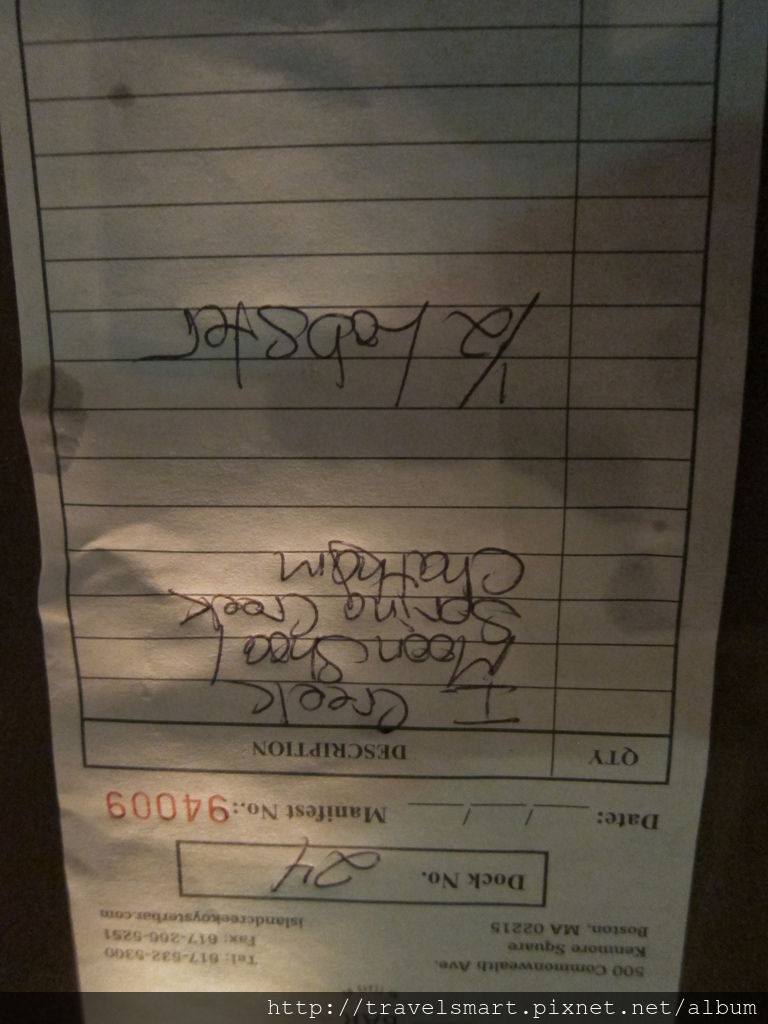 BAR
500 Commonwealth Ave.
Kenmore Square
Boston, MA 02215
Tel: 617-532-5300
Fax: 617-266-5251
islandcreekoysterbar.com
Dock No. 24
Date: ___/___/___ Manifest No.: 94009
QTY DESCRIPTION
I Creek
Moon Shoal
Spring Creek
Chatham
1/2 Lobster
http://travelsmart.pixnet.net/album